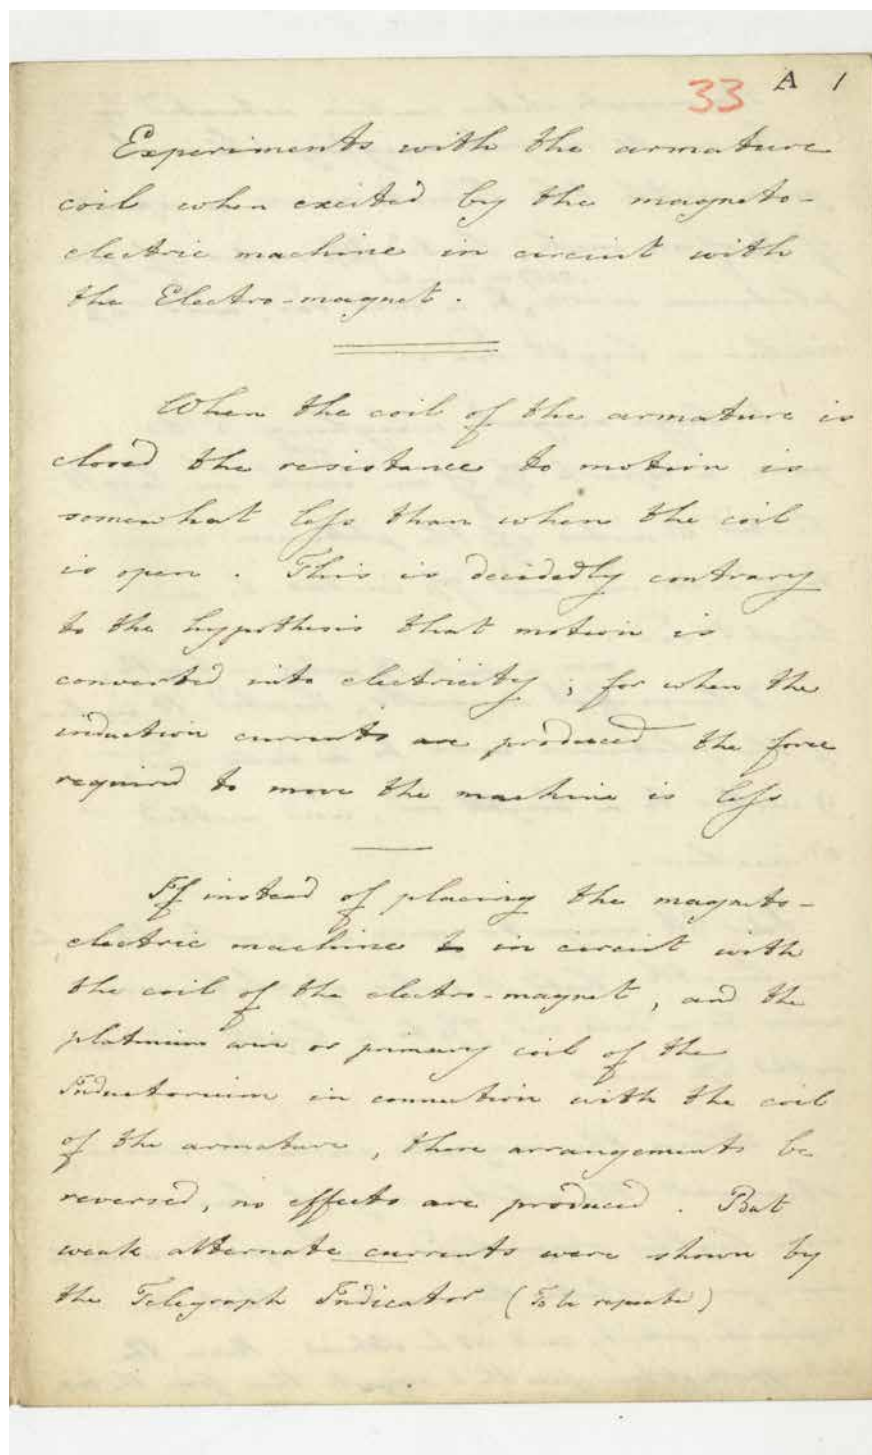 33 A 1
Experiments with the armature
coil when excited by the magneto-
electric machine in circuit with
the Electro-magnet.
When the coil of the armature is
closed the resistance to motion is
somewhat less than when the coil
is open. This is decidedly contrary
to the hypothesis that motion is
converted into electricity; for when the
induction currents are produced the force
required to move the machine is less
If instead of placing the magneto-
electric machine to in circuit with
the coil of the electro-magnet, and the
platinum wire or primary coil of the
Inductorium in connection with the coil
of the armature, these arrangements be
reversed, no effects are produced. But
weak alternate currents were shown by
the Telegraph Indicator (To be repeated)